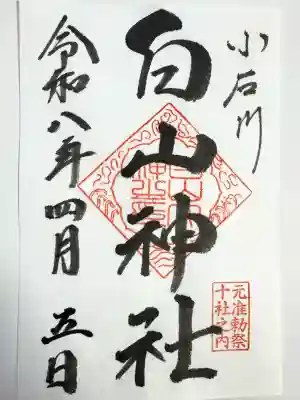 小石川
白山神社
元准勅祭
十社之内
令和八年四月五日